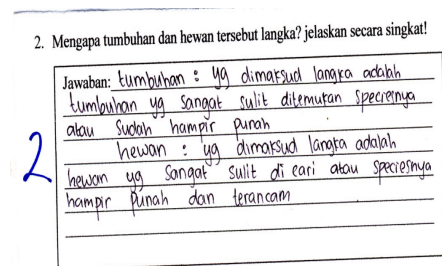 2. Mengapa tumbuhan dan hewan tersebut langka? jelaskan secara singkat!
Jawaban: tumbuhan : yg dimaksud langka adalah
tumbuhan yg sangat sulit ditemukan speciesnya
atau sudah hampir punah
hewan : yg dimaksud langka adalah
2 hewan yg sangat sulit di cari atau speciesnya
hampir punah dan terancam